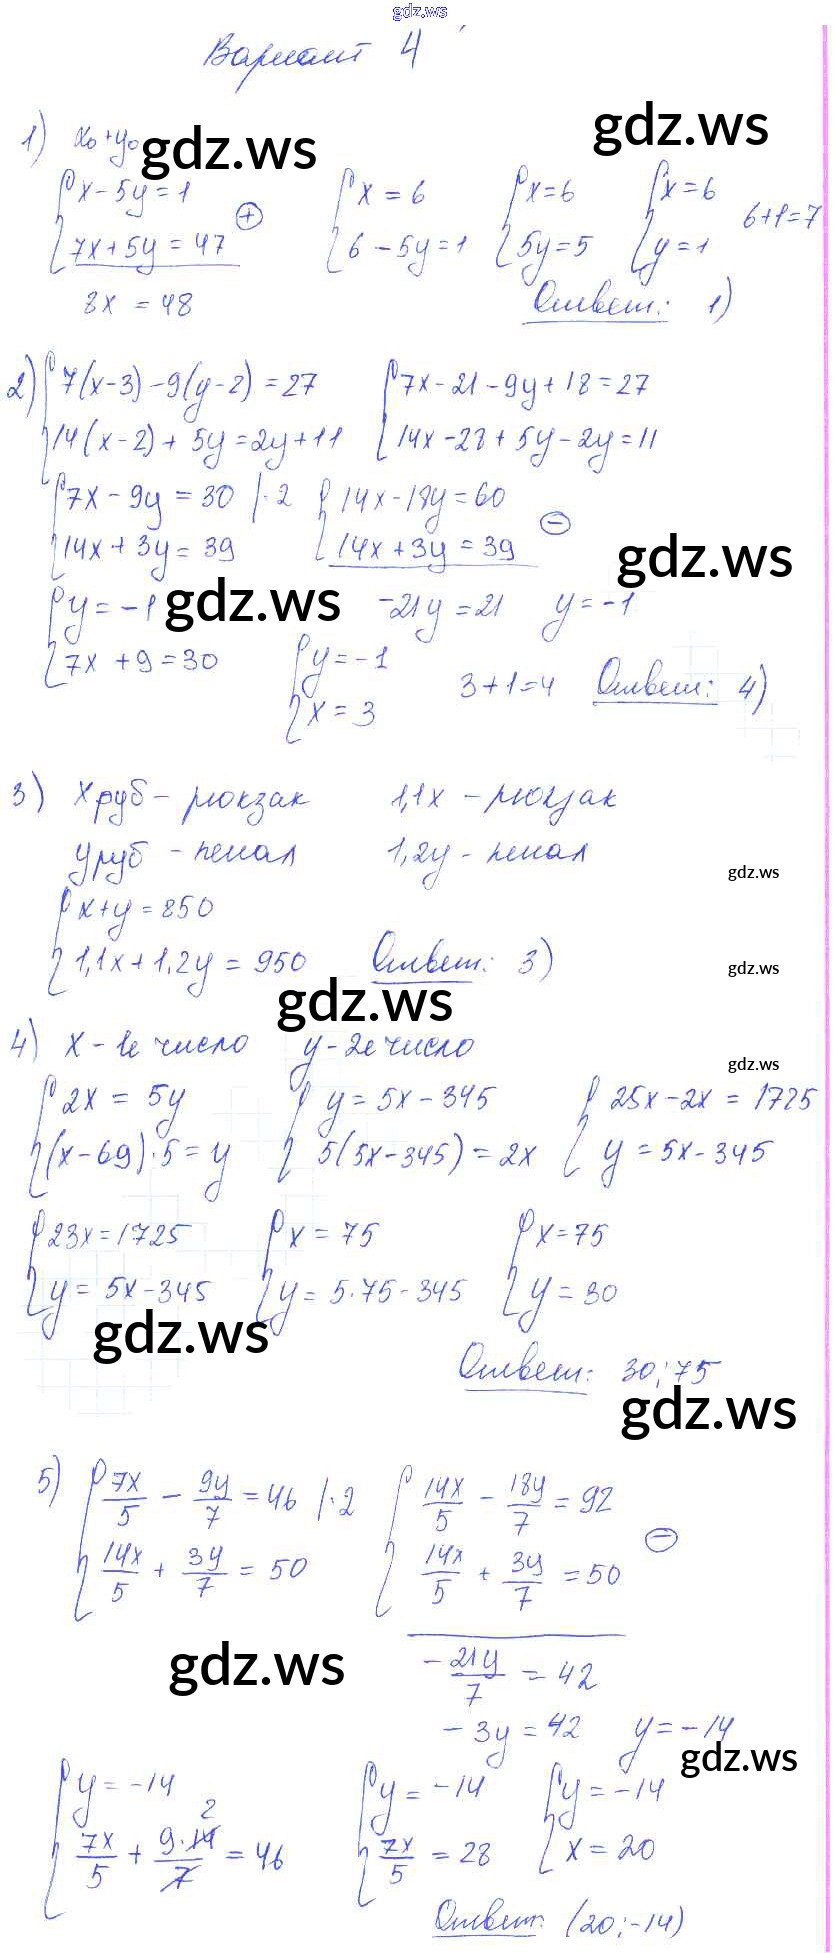 gdz.ws
Вариант 4
1) x₀+y₀
gdz.ws
gdz.ws
{x-5y=1
7x+5y=47 ⊕
8x=48
{x=6
6-5y=1
{x=6
5y=5
{x=6
y=1
6+1=7
Ответ: 1)
2) {7(x-3)-9(y-2)=27
14(x-2)+5y=2y+11
{7x-21-9y+18=27
14x-28+5y-2y=11
{7x-9y=30 |·2
14x+3y=39
{14x-18y=60
14x+3y=39 ⊖
gdz.ws
gdz.ws
-21y=21 y=-1
{y=-1
7x+9=30
{y=-1
x=3
3+1=4 Ответ: 4)
3) x руб - рюкзак 1,1x - рюкзак
y руб - пенал 1,2y - пенал
gdz.ws
{x+y=850
1,1x+1,2y=950 Ответ: 3)
gdz.ws
gdz.ws
4) x - 1е число y - 2е число
gdz.ws
{2x=5y
(x-69)·5=y
{y=5x-345
5(5x-345)=2x
{25x-2x=1725
y=5x-345
{23x=1725
y=5x-345
{x=75
y=5·75-345
{x=75
y=30
gdz.ws
Ответ: 30; 75
gdz.ws
5) {7x/5 - 9y/7 = 46 |·2
14x/5 + 3y/7 = 50
{14x/5 - 18y/7 = 92
14x/5 + 3y/7 = 50 ⊖
gdz.ws
-21y/7 = 42
-3y=42 y=-14
gdz.ws
{y=-14
7x/5 + 9·14/7 = 46
2
{y=-14
7x/5 = 28
{y=-14
x=20
Ответ: (20;-14)